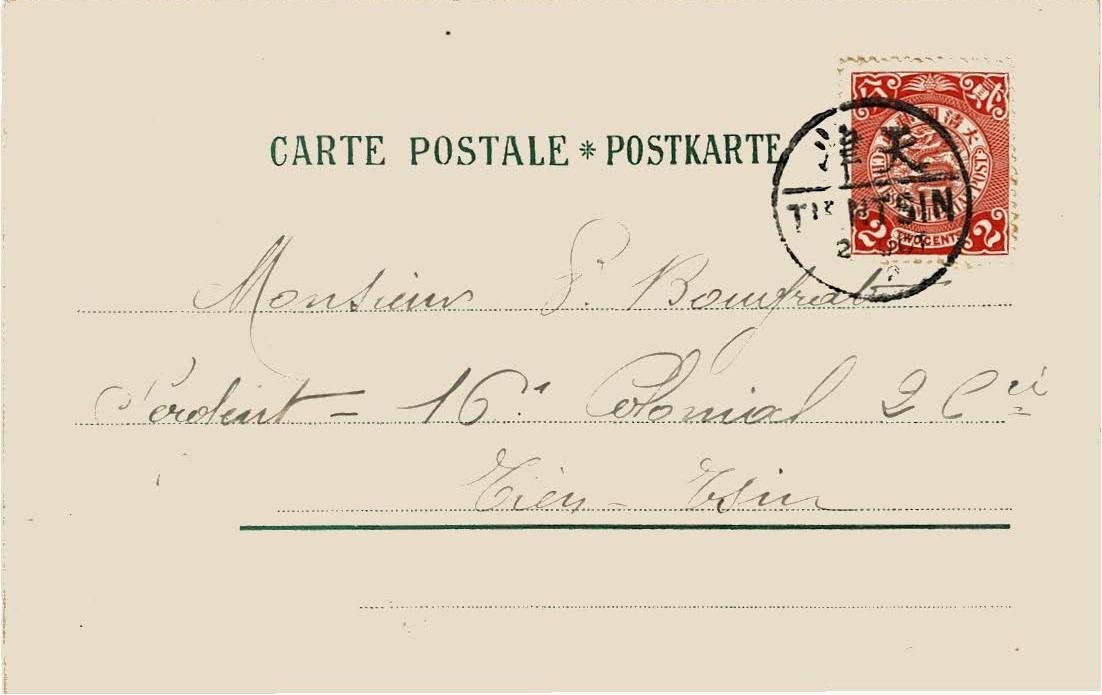 CARTE POSTALE * POSTKARTE
貳 分
大清國郵政
CHINESE IMPERIAL POST
2 TWO CENTS 2
天津
TIENTSIN
2
Monsieur
16e Colonial 2 Cie
Tièn-Tsin